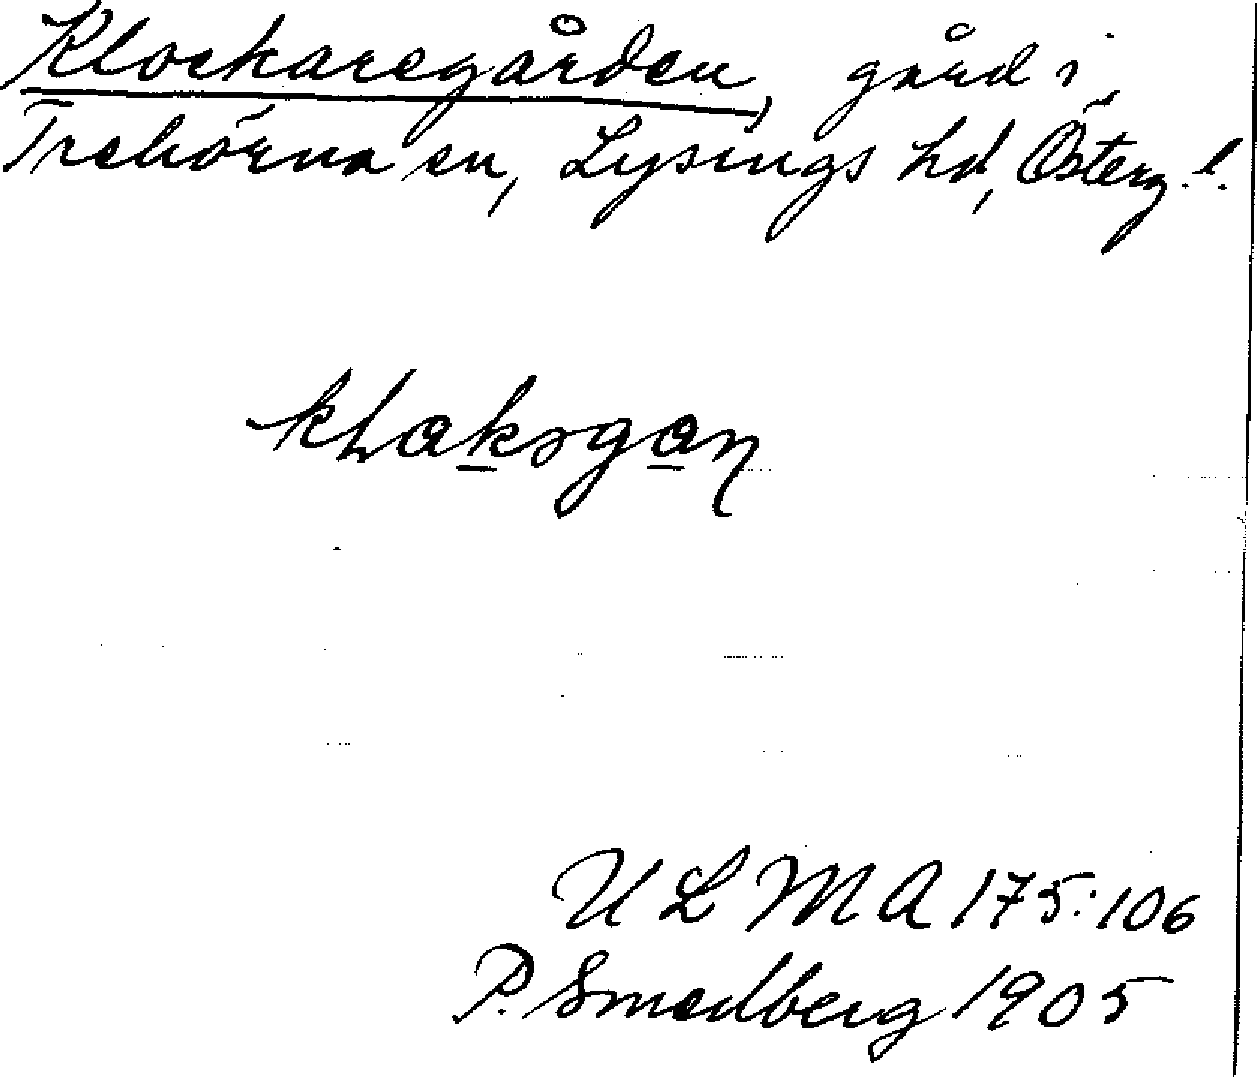 Klockaregården, gård i
Trehörna sn, Lysings hd, Österg. l.
ULMA 175:106
P. Smedberg 1905